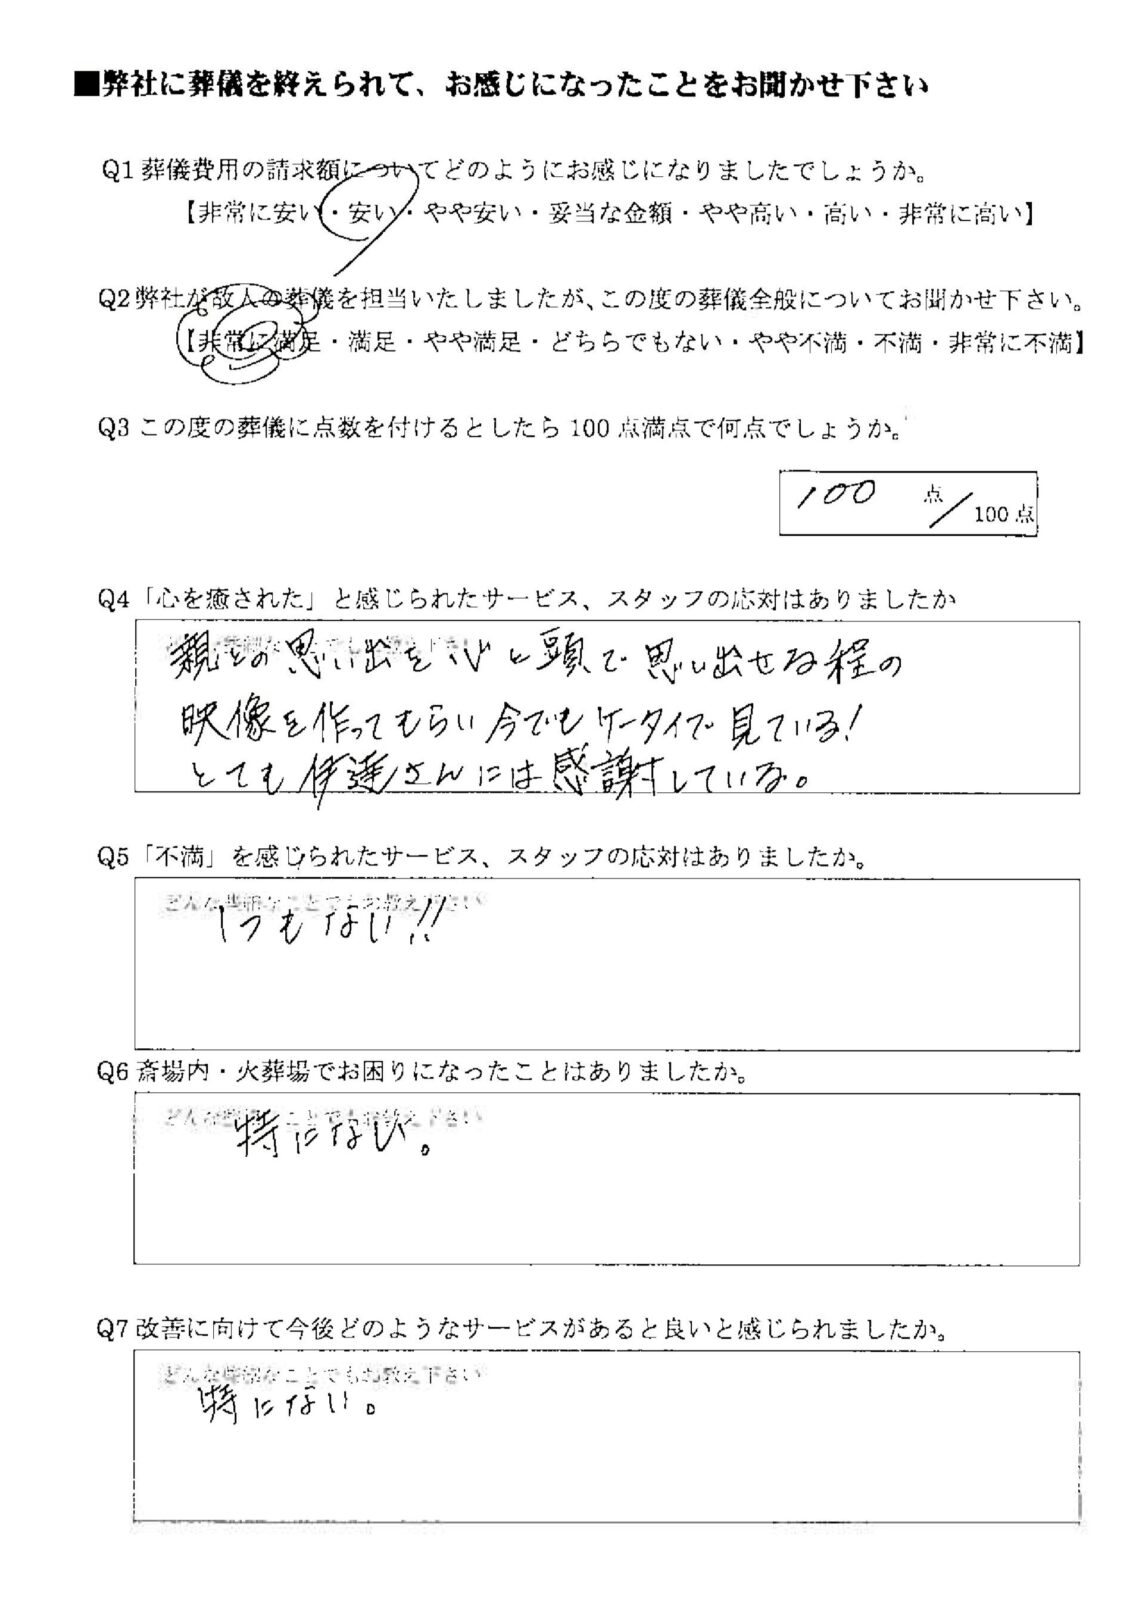 ■弊社に葬儀を終えられて、お感じになったことをお聞かせ下さい
Q1 葬儀費用の請求額についてどのようにお感じになりましたでしょうか。
【非常に安い・安い・やや安い・妥当な金額・やや高い・高い・非常に高い】
Q2 弊社が故人の葬儀を担当いたしましたが、この度の葬儀全般についてお聞かせ下さい。
【非常に満足・満足・やや満足・どちらでもない・やや不満・不満・非常に不満】
Q3 この度の葬儀に点数を付けるとしたら 100 点満点で何点でしょうか。
100 点/100 点
Q4「心を癒された」と感じられたサービス、スタッフの応対はありましたか
親との思い出を心と頭で思い出せる程の
映像を作ってもらい今でもケータイで見ている!
とても伊達さんには感謝している。
Q5「不満」を感じられたサービス、スタッフの応対はありましたか。
どんな些細なことでもお教え下さい
1つもない!!
Q6 斎場内・火葬場でお困りになったことはありましたか。
どんな些細なことでもお教え下さい
特にない。
Q7 改善に向けて今後どのようなサービスがあると良いと感じられましたか。
どんな些細なことでもお教え下さい
特にない。